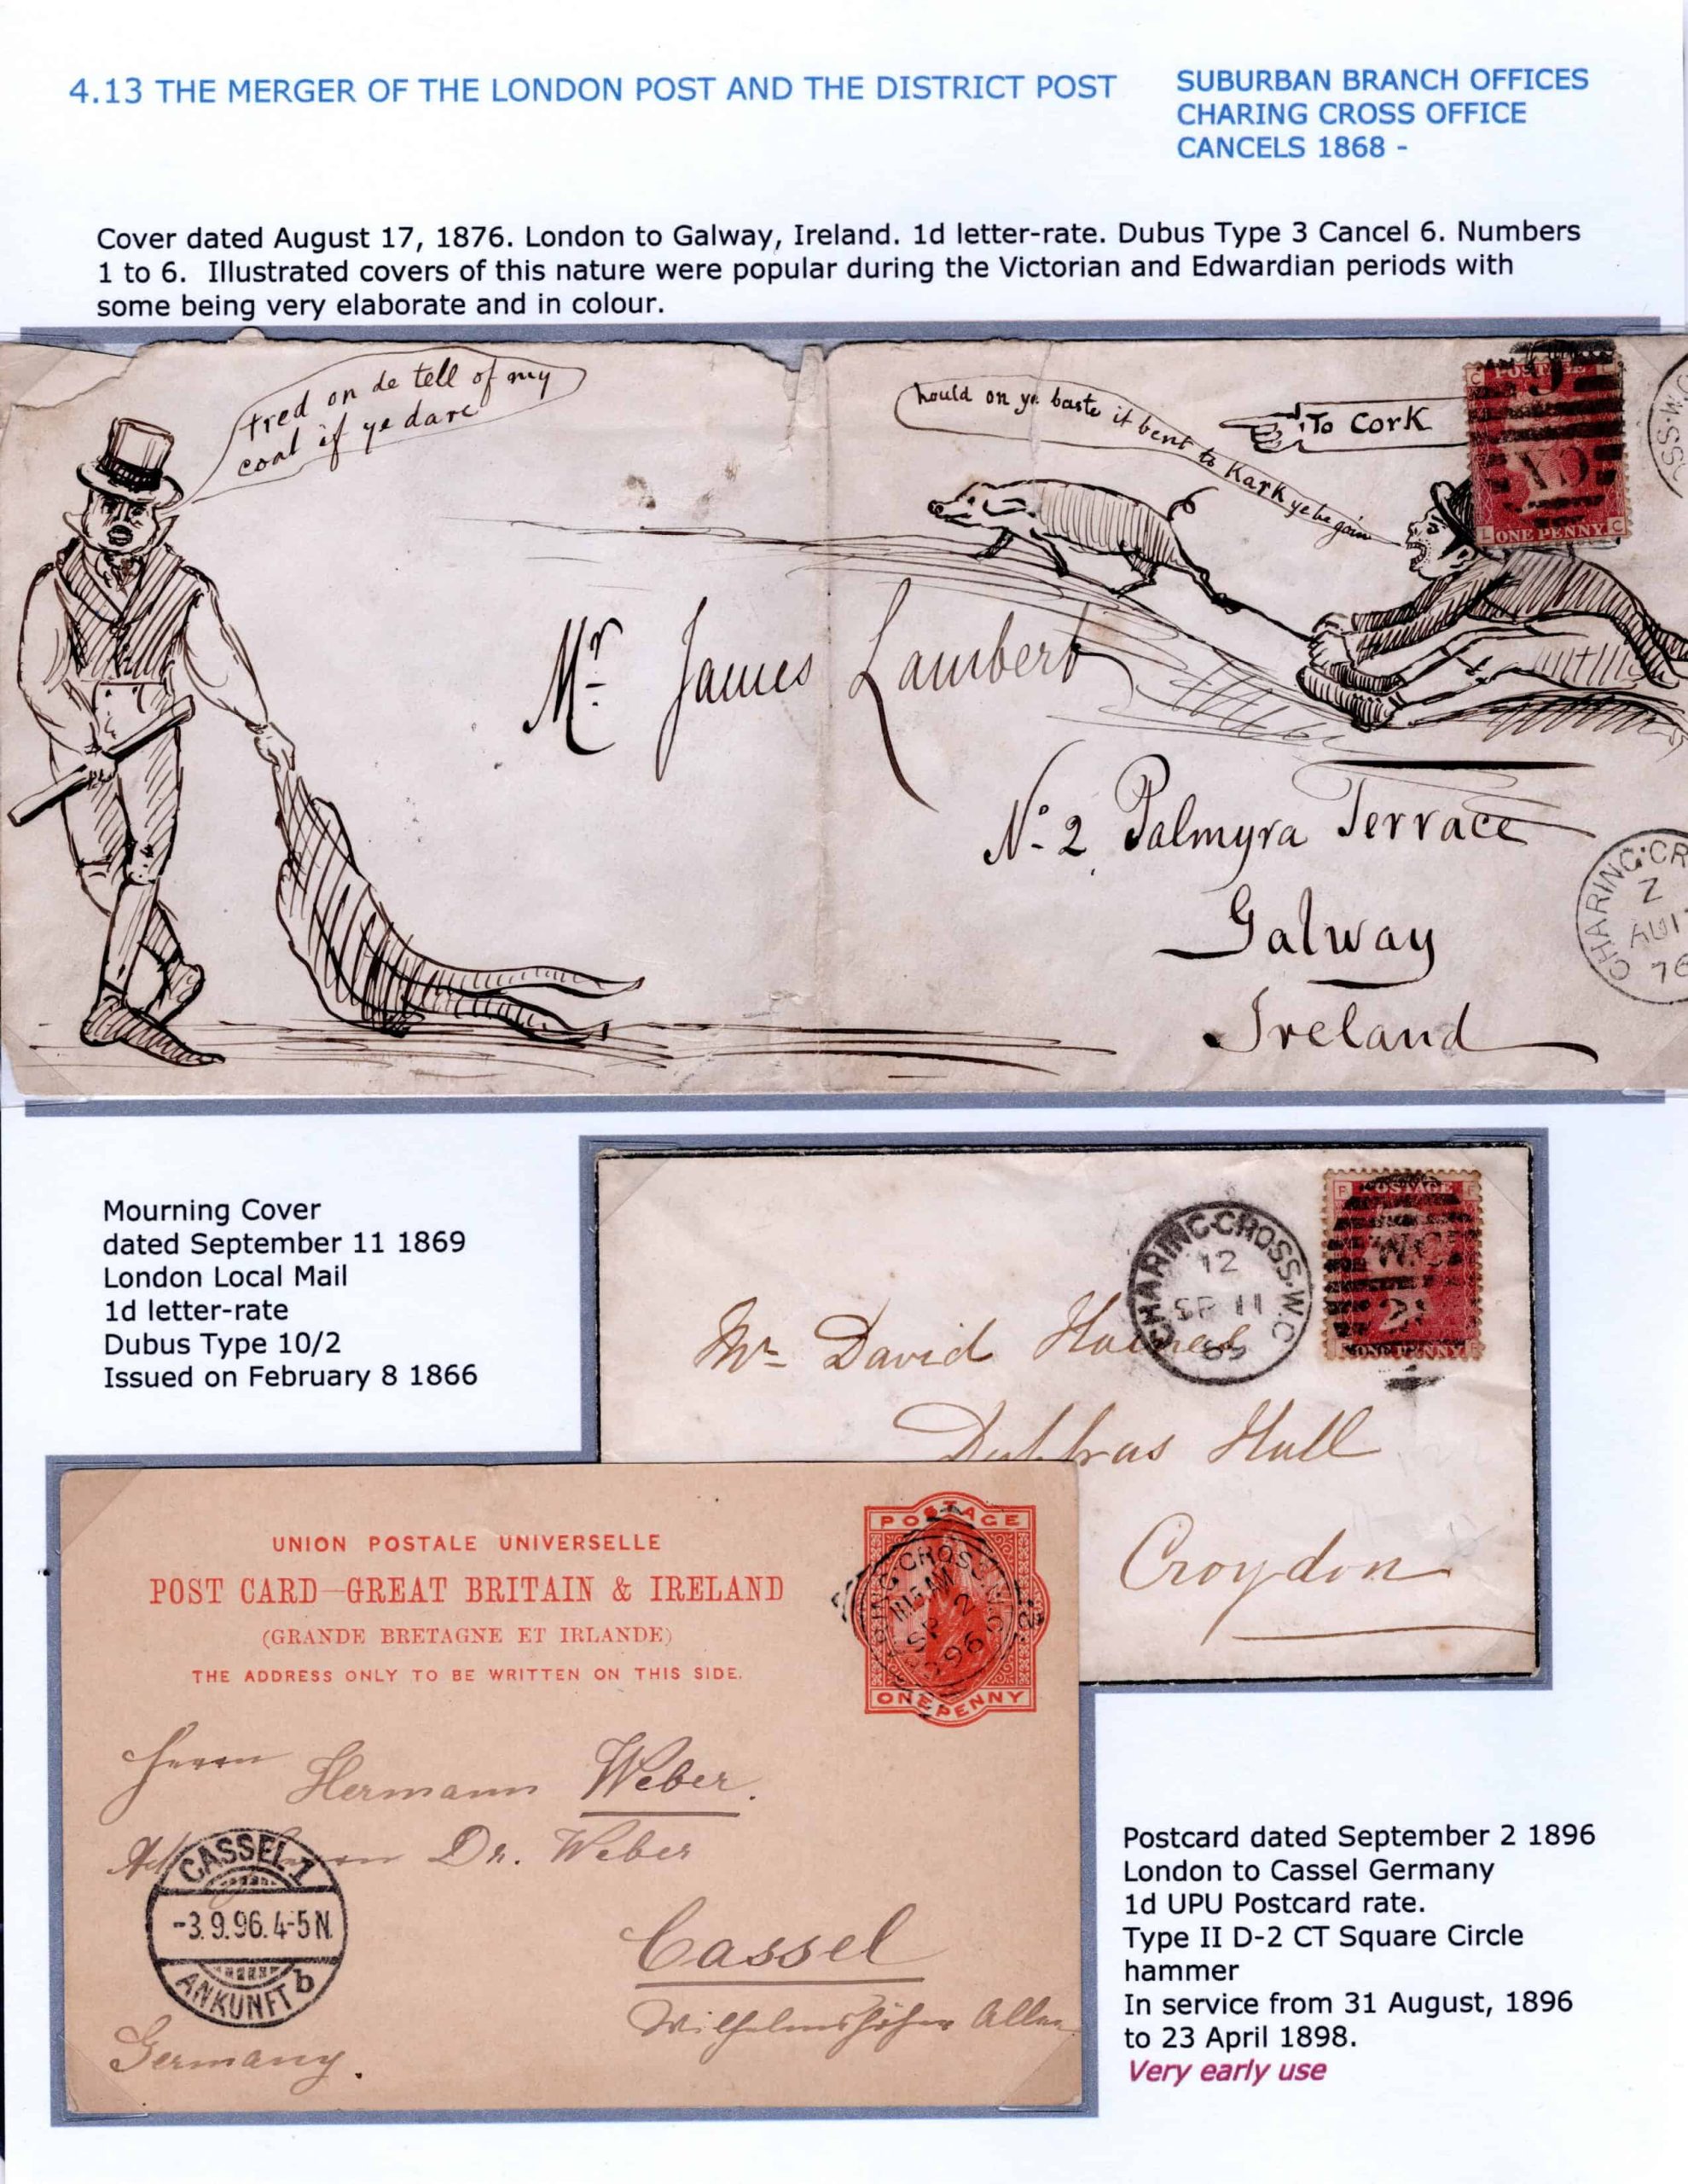 4.13 THE MERGER OF THE LONDON POST AND THE DISTRICT POST
SUBURBAN BRANCH OFFICES
CHARING CROSS OFFICE
CANCELS 1868 -
Cover dated August 17, 1876. London to Galway, Ireland. 1d letter-rate. Dubus Type 3 Cancel 6. Numbers
1 to 6. Illustrated covers of this nature were popular during the Victorian and Edwardian periods with
some being very elaborate and in colour.
tred on de tell of my
coat if ye dare
hould on ye baste it bent to Kark ye be goin
To Cork
POSTAGE
ONE PENNY
SS.W.C
Mr James Lambert
No 2 Palmyra Terrace
Galway
Ireland
CHARING CR
Z
AU 17
76
Mourning Cover
dated September 11 1869
London Local Mail
1d letter-rate
Dubus Type 10/2
Issued on February 8 1866
CHARING-CROSS.W.C
12
SP 11
69
POSTAGE
W.C
2
ONE PENNY
Mr David Haines
Hall
Croydon
UNION POSTALE UNIVERSELLE
POST CARD—GREAT BRITAIN & IRELAND
(GRANDE BRETAGNE ET IRLANDE)
THE ADDRESS ONLY TO BE WRITTEN ON THIS SIDE.
POSTAGE
ONE PENNY
CROSS
11.15AM
SP 2
96
Herrn Hermann Weber.
Dr. Weber
Cassel
Wilhelmshöher Allee
Germany.
CASSEL.1
-3.9.96.4-5N.
ANKUNFT b
Postcard dated September 2 1896
London to Cassel Germany
1d UPU Postcard rate.
Type II D-2 CT Square Circle
hammer
In service from 31 August, 1896
to 23 April 1898.
Very early use